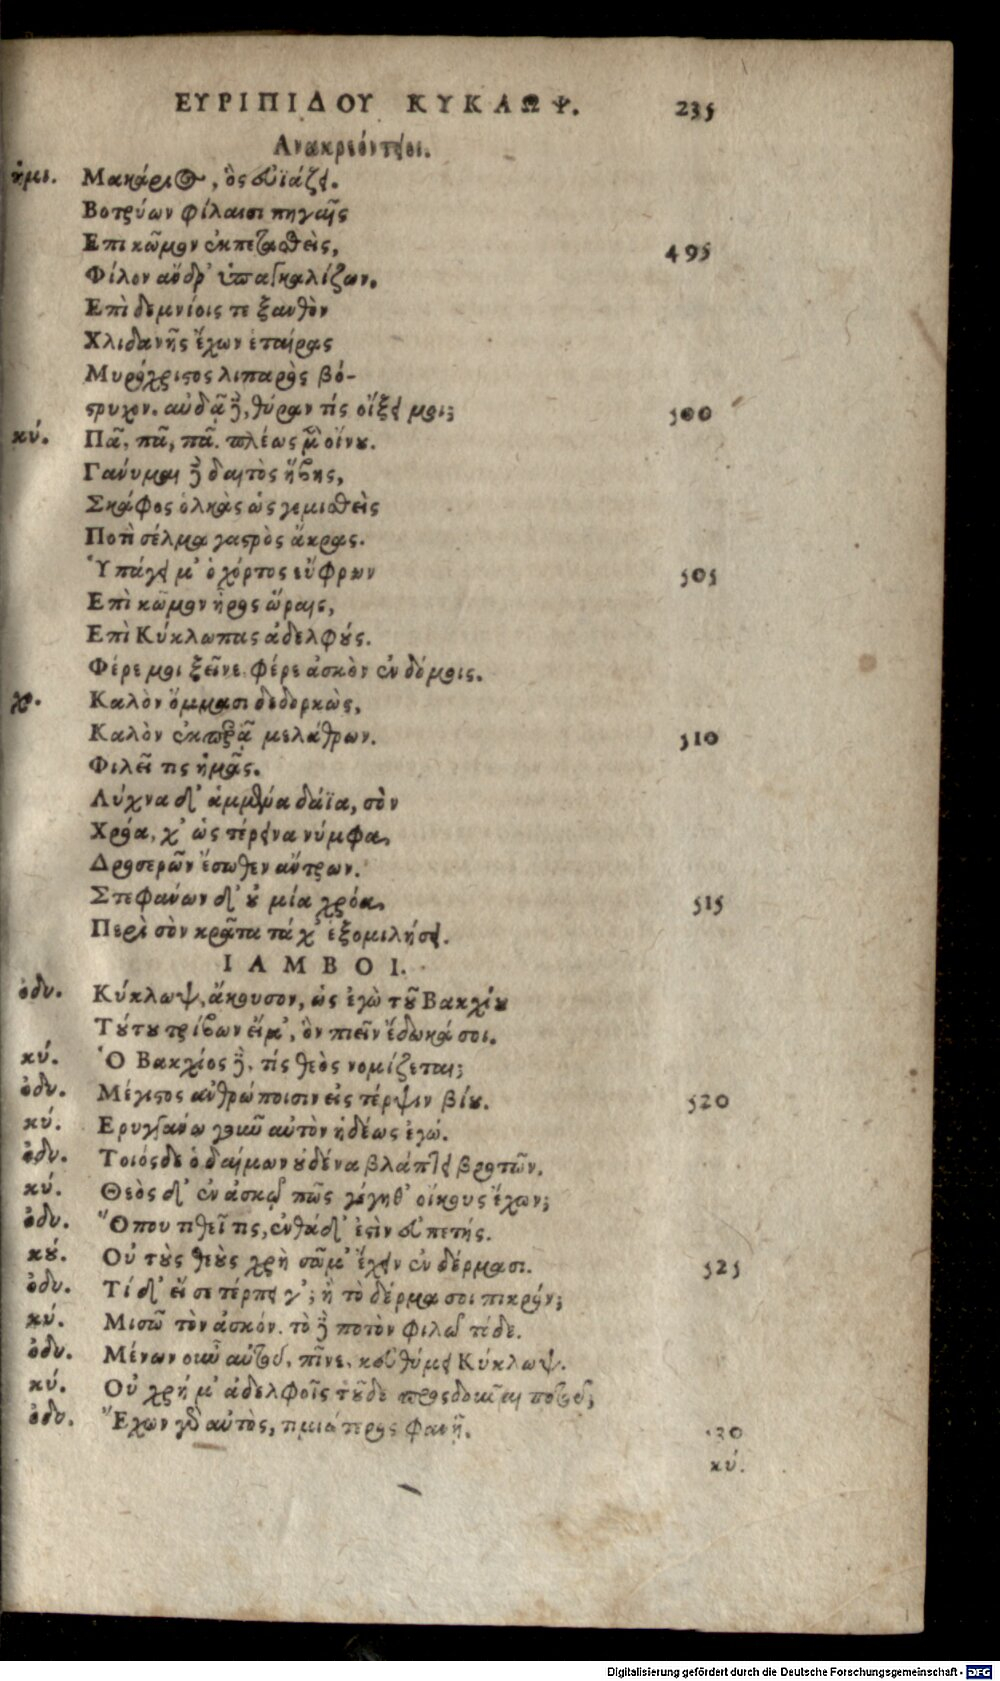 ΕΥΡΙΠΙΔΟΥ ΚΥΚΛΩΨ. 235
Ανακρεόντειοι.
ἡμι. Μακάριος, ὃς εὐϊάζει.
Βοτρύων φίλαισι πηγαῖς
Επι κῶμον ἐκπετασθεὶς, 495
Φίλον ἄνδρ' ὑπαγκαλίζων.
Επὶ δεμνίοις τε ξανθὸν
Χλιδανῆς ἔχων ἑταίρας
Μυρόχριστος λιπαρὸς βό-
στρυχον. αὐδᾷ δὲ, θύραν τίς οἴξει μοι; 500
κύ. Πᾶ, πᾶ, πᾶ. πλέως μὲν οἴνου.
Γάνυμαι δὲ δαιτὸς ἥβης,
Σκάφος ὁλκὰς ὡς γεμισθεὶς
Ποτὶ σέλμα γαστρὸς ἄκρας.
Ὑπάγει μ' ὁ χόρτος εὔφρων 505
Επὶ κῶμον ἦρος ὥραις,
Επὶ Κύκλωπας ἀδελφούς.
Φέρε μοι ξεῖνε φέρε ἀσκὸν ἐν δόμοις.
χο. Καλὸν ὄμμασι δεδορκὼς,
Καλὸν ἐκπερᾷ μελάθρων. 510
Φιλεῖ τις ἡμᾶς.
Λύχνα δ' ἀμμένα δάϊα, σὸν
Χρόα, χ' ὡς τέρεινα νύμφα,
Δροσερῶν ἔσωθεν ἄντρων.
Στεφάνων δ' οὐ μία χρόα, 515
Περὶ σὸν κρᾶτα τά χ' ἐξομιλήσει.
ΙΑΜΒΟΙ.
ὀδυ. Κύκλωψ, ἄκουσον, ὡς ἐγὼ τοῦ Βακχίου
Τούτου τρίβων εἴμ', ὃν πιεῖν ἔδωκά σοι.
κύ. Ὁ Βακχίος δὲ, τίς θεὸς νομίζεται;
ὀδυ. Μέγιστος ἀνθρώποισιν εἰς τέρψιν βίου. 520
κύ. Ερυγγάνω γοῦν αὐτὸν ἡδέως ἐγώ.
ὀδυ. Τοιόςδε ὁ δαίμων οὐδένα βλάπτει βροτῶν.
κύ. Θεὸς δ' ἐν ἀσκῷ πῶς γέγηθ' οἴκους ἔχων;
ὀδυ. Ὅπου τιθεῖ τις, ἐνθάδ' ἐστὶν εὐπετής.
κύ. Οὐ τοὺς θεοὺς χρὴ σῶμ' ἔχειν ἐν δέρμασι. 525
ὀδυ. Τί δ' εἴ σε τέρπει γ'; ἢ τὸ δέρμα σοι πικρόν;
κύ. Μισῶ τὸν ἀσκόν. τὸ δὲ ποτὸν φιλῶ τόδε.
ὀδυ. Μένων οὖν αὐτοῦ, πῖνε, κεὐθύμει Κύκλωψ.
κύ. Οὐ χρή μ' ἀδελφοῖς τοῦδε προςδοῦναι ποτοῦ;
ὀδυ. Ἔχων γὰρ αὐτὸς, τιμιώτερος φανῇ. 530
κύ.
Digitalisierung gefördert durch die Deutsche Forschungsgemeinschaft - DFG